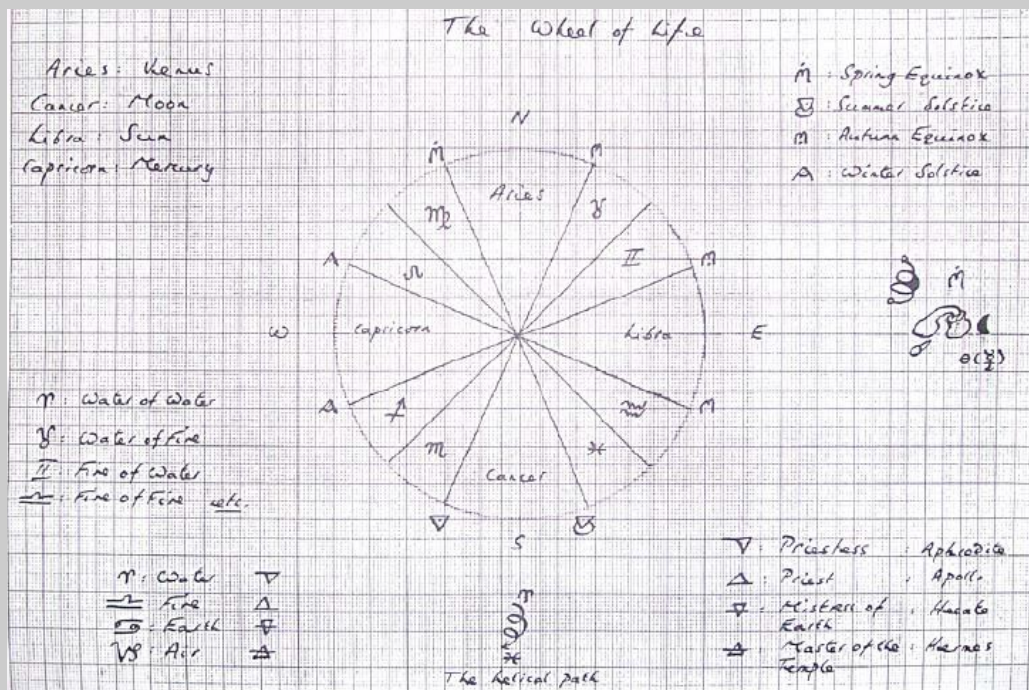 The Wheel of Life
Aries: Venus
Cancer: Moon
Libra: Sun
Capricorn: Mercury
ṁ : Spring Equinox
: Summer Solstice
m : Autumn Equinox
A : Winter Solstice
N
ṁ
m
Aries
♍
♉
♊
A
m
♌
W
Capricorn
Libra
E
ṁ
θ(
A
m
♐
♒
♏
♓
Cancer
S
♈: Water of Water
♉: Water of Fire
♊: Fire of Water
♎: Fire of Fire etc.
♈: Water ▽
♎: Fire △
♋: Earth
♑: Air
♈
♓
The helical path
▽: Priestess : Aphrodite
△: Priest : Apollo
: Mistress of : Hecate
Earth
: Master of the : Hermes
Temple